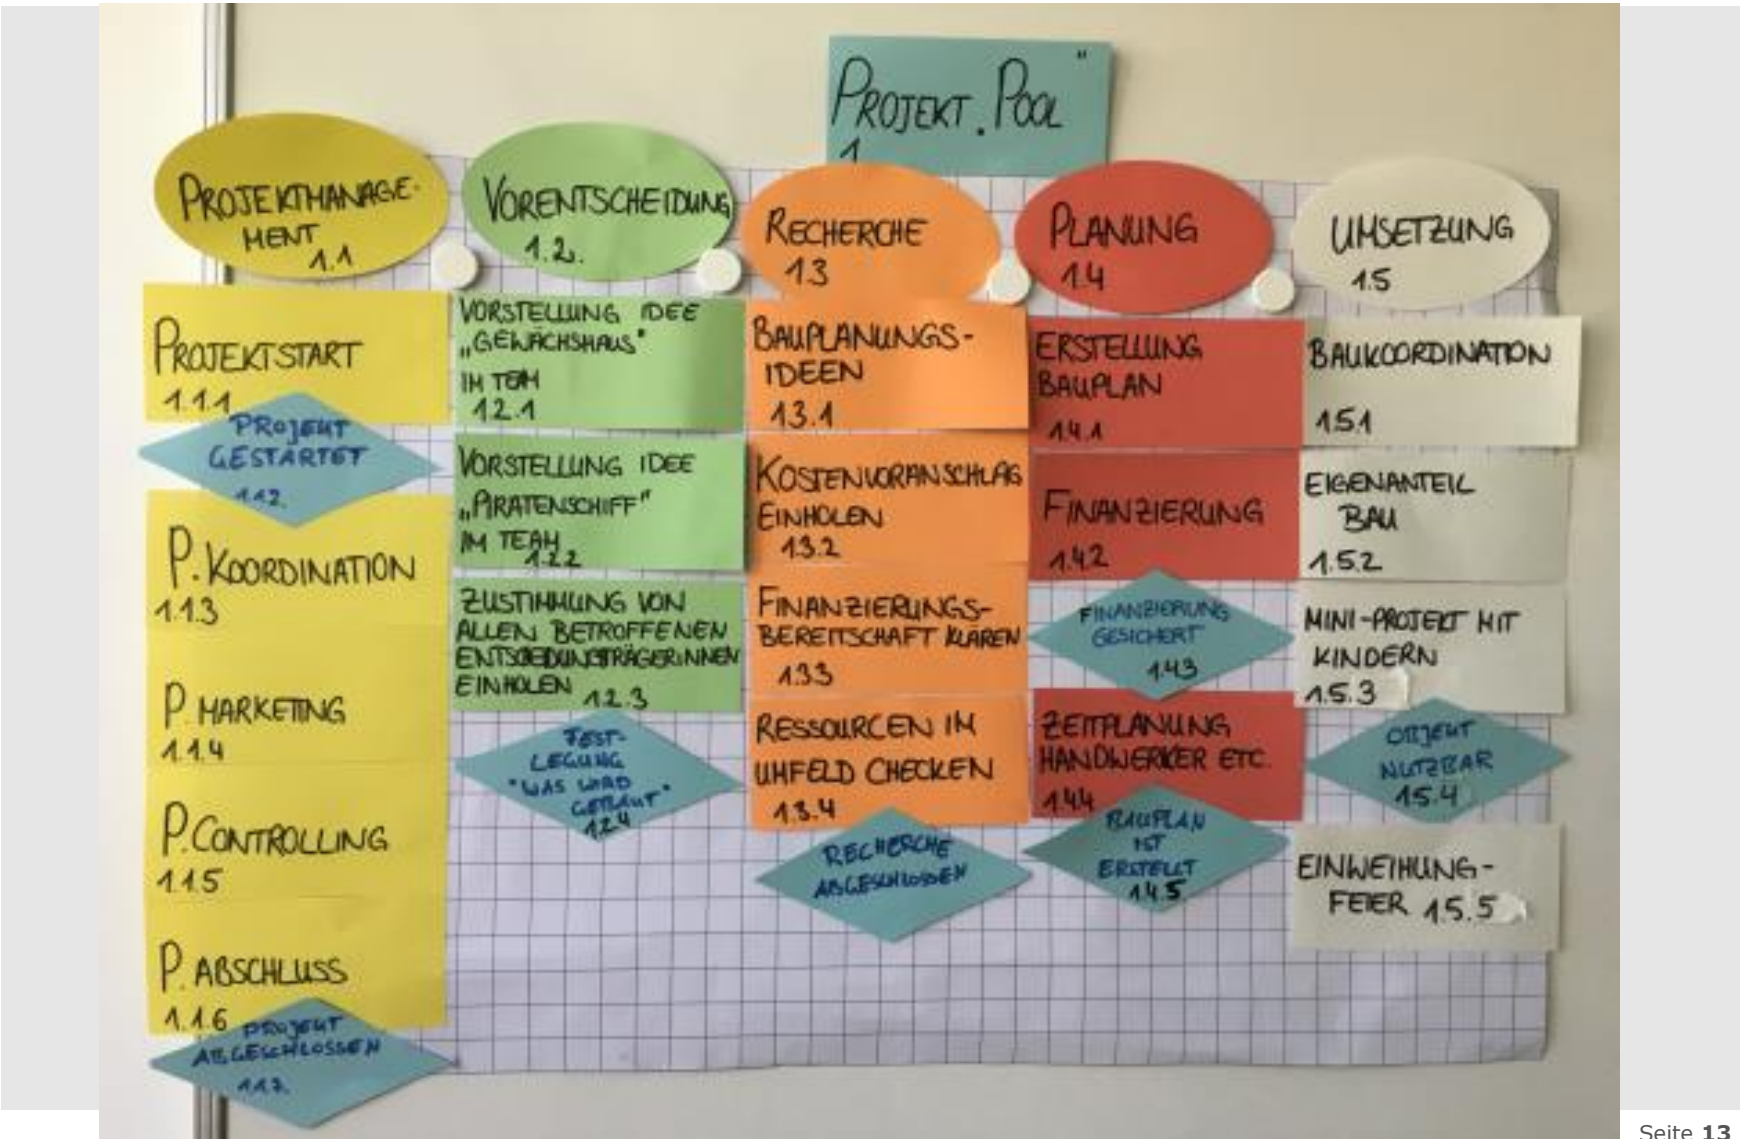 PROJEKT „POOL"
1
PROJEKTMANAGE-
MENT
1.1
PROJEKTSTART
1.1.1
PROJEKT
GESTARTET
1.1.2.
P. KOORDINATION
1.1.3
P. MARKETING
1.1.4
P. CONTROLLING
1.1.5
P. ABSCHLUSS
1.1.6
PROJEKT
ABGESCHLOSSEN
1.1.7.
VORENTSCHEIDUNG
1.2.
VORSTELLUNG IDEE
„GEWÄCHSHAUS"
IM TEAM
1.2.1
VORSTELLUNG IDEE
„PIRATENSCHIFF"
IM TEAM
1.2.2
ZUSTIMMUNG VON
ALLEN BETROFFENEN
ENTSCHEIDUNGSTRÄGERINNEN
EINHOLEN
1.2.3
FEST-
LEGUNG
"WAS WIRD
GEBAUT"
1.2.4
RECHERCHE
1.3
BAUPLANUNGS-
IDEEN
1.3.1
KOSTENVORANSCHLAG
EINHOLEN
1.3.2
FINANZIERUNGS-
BEREITSCHAFT KLÄREN
1.3.3
RESSOURCEN IM
UMFELD CHECKEN
1.3.4
RECHERCHE
ABGESCHLOSSEN
PLANUNG
1.4
ERSTELLUNG
BAUPLAN
1.4.1
FINANZIERUNG
1.4.2
FINANZIERUNG
GESICHERT
1.4.3
ZEITPLANUNG
HANDWERKER ETC.
1.4.4
BAUPLAN
IST
ERSTELLT
1.4.5
UMSETZUNG
1.5
BAUKOORDINATION
1.5.1
EIGENANTEIL
BAU
1.5.2
MINI-PROJEKT MIT
KINDERN
1.5.3
OBJEKT
NUTZBAR
1.5.4
EINWEIHUNG-
FEIER 1.5.5
Seite 13